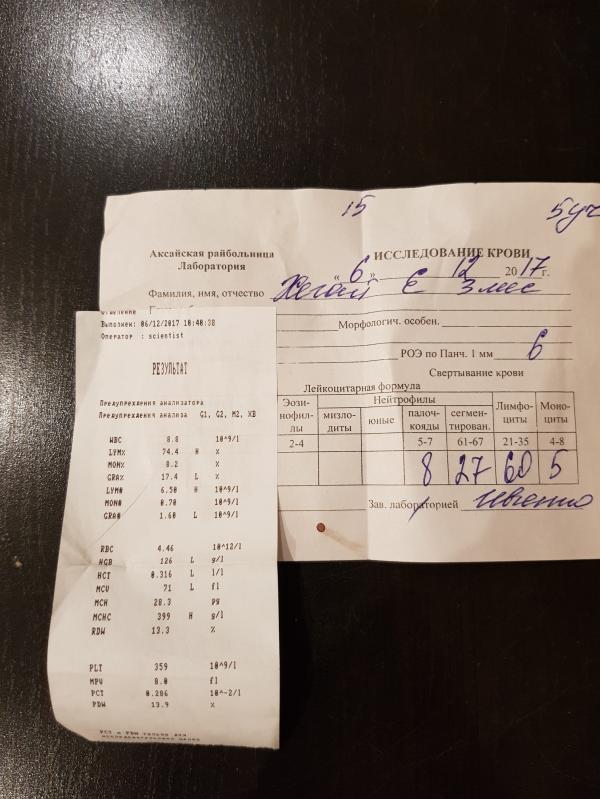 15
5 уч
Аксайская райбольница
Лаборатория
ИССЛЕДОВАНИЕ КРОВИ
« 6 » 12 2017 г.
Фамилия, имя, отчество Хегай Е 3 мес
Морфологич. особен.
РОЭ по Панч. 1 мм 6
Свертывание крови
Лейкоцитарная формула
Эозинофиллы Нейтрофилы Лимфоциты Моноциты
мизлодиты юные палочкояды сегментирован.
2-4 5-7 61-67 21-35 4-8
8 27 60 5
Зав. лабораторией
Выполнен: 06/12/2017 10:40:38
Оператор : scientist
РЕЗУЛЬТАТ
Предупреждения анализатора
Предупреждения анализа G1, G2, M2, XB
WBC 8.8 10^9/l
LYM% 74.4 H %
MON% 8.2 %
GRA% 17.4 L %
LYM# 6.50 H 10^9/l
MON# 0.70 10^9/l
GRA# 1.60 L 10^9/l
RBC 4.46 10^12/l
HGB 126 L g/l
HCT 0.316 L l/l
MCV 71 L fl
MCH 28.3 pg
MCHC 399 H g/l
RDW 13.3 %
PLT 359 10^9/l
MPV 8.0 fl
PCT 0.286 10^-2/l
PDW 13.9 %
PCT и PDW только для